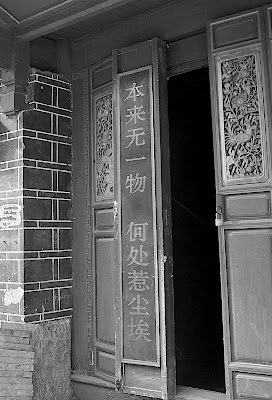 本来无一物 何处惹尘埃